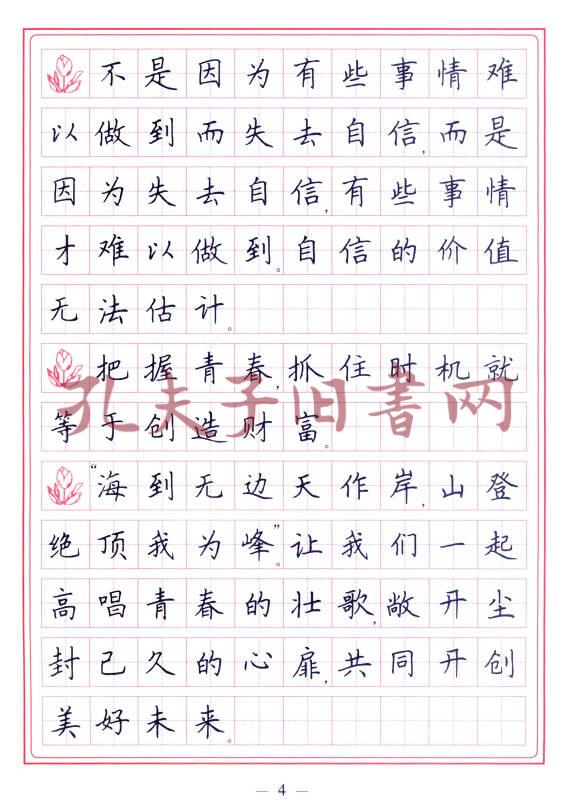 不是因为有些事情难
以做到而失去自信,而是
因为失去自信,有些事情
才难以做到。自信的价值
无法估计。
把握青春,抓住时机就
等于创造财富。
“海到无边天作岸,山登
绝顶我为峰”。让我们一起
高唱青春的壮歌,敞开尘
封已久的心扉,共同开创
美好未来。
孔夫子旧书网
— 4 —